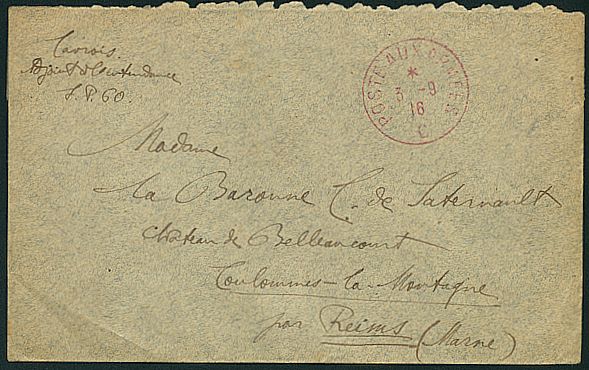 Cavrois.
Adjoint à l'Intendance
S.P. 60.
POSTE AUX ARMEES
*
3 -9
16
C
Madame
La Baronne C. de Saternault
Château de Belleaucourt
Coulommes-la-Montagne
par Reims (Marne)